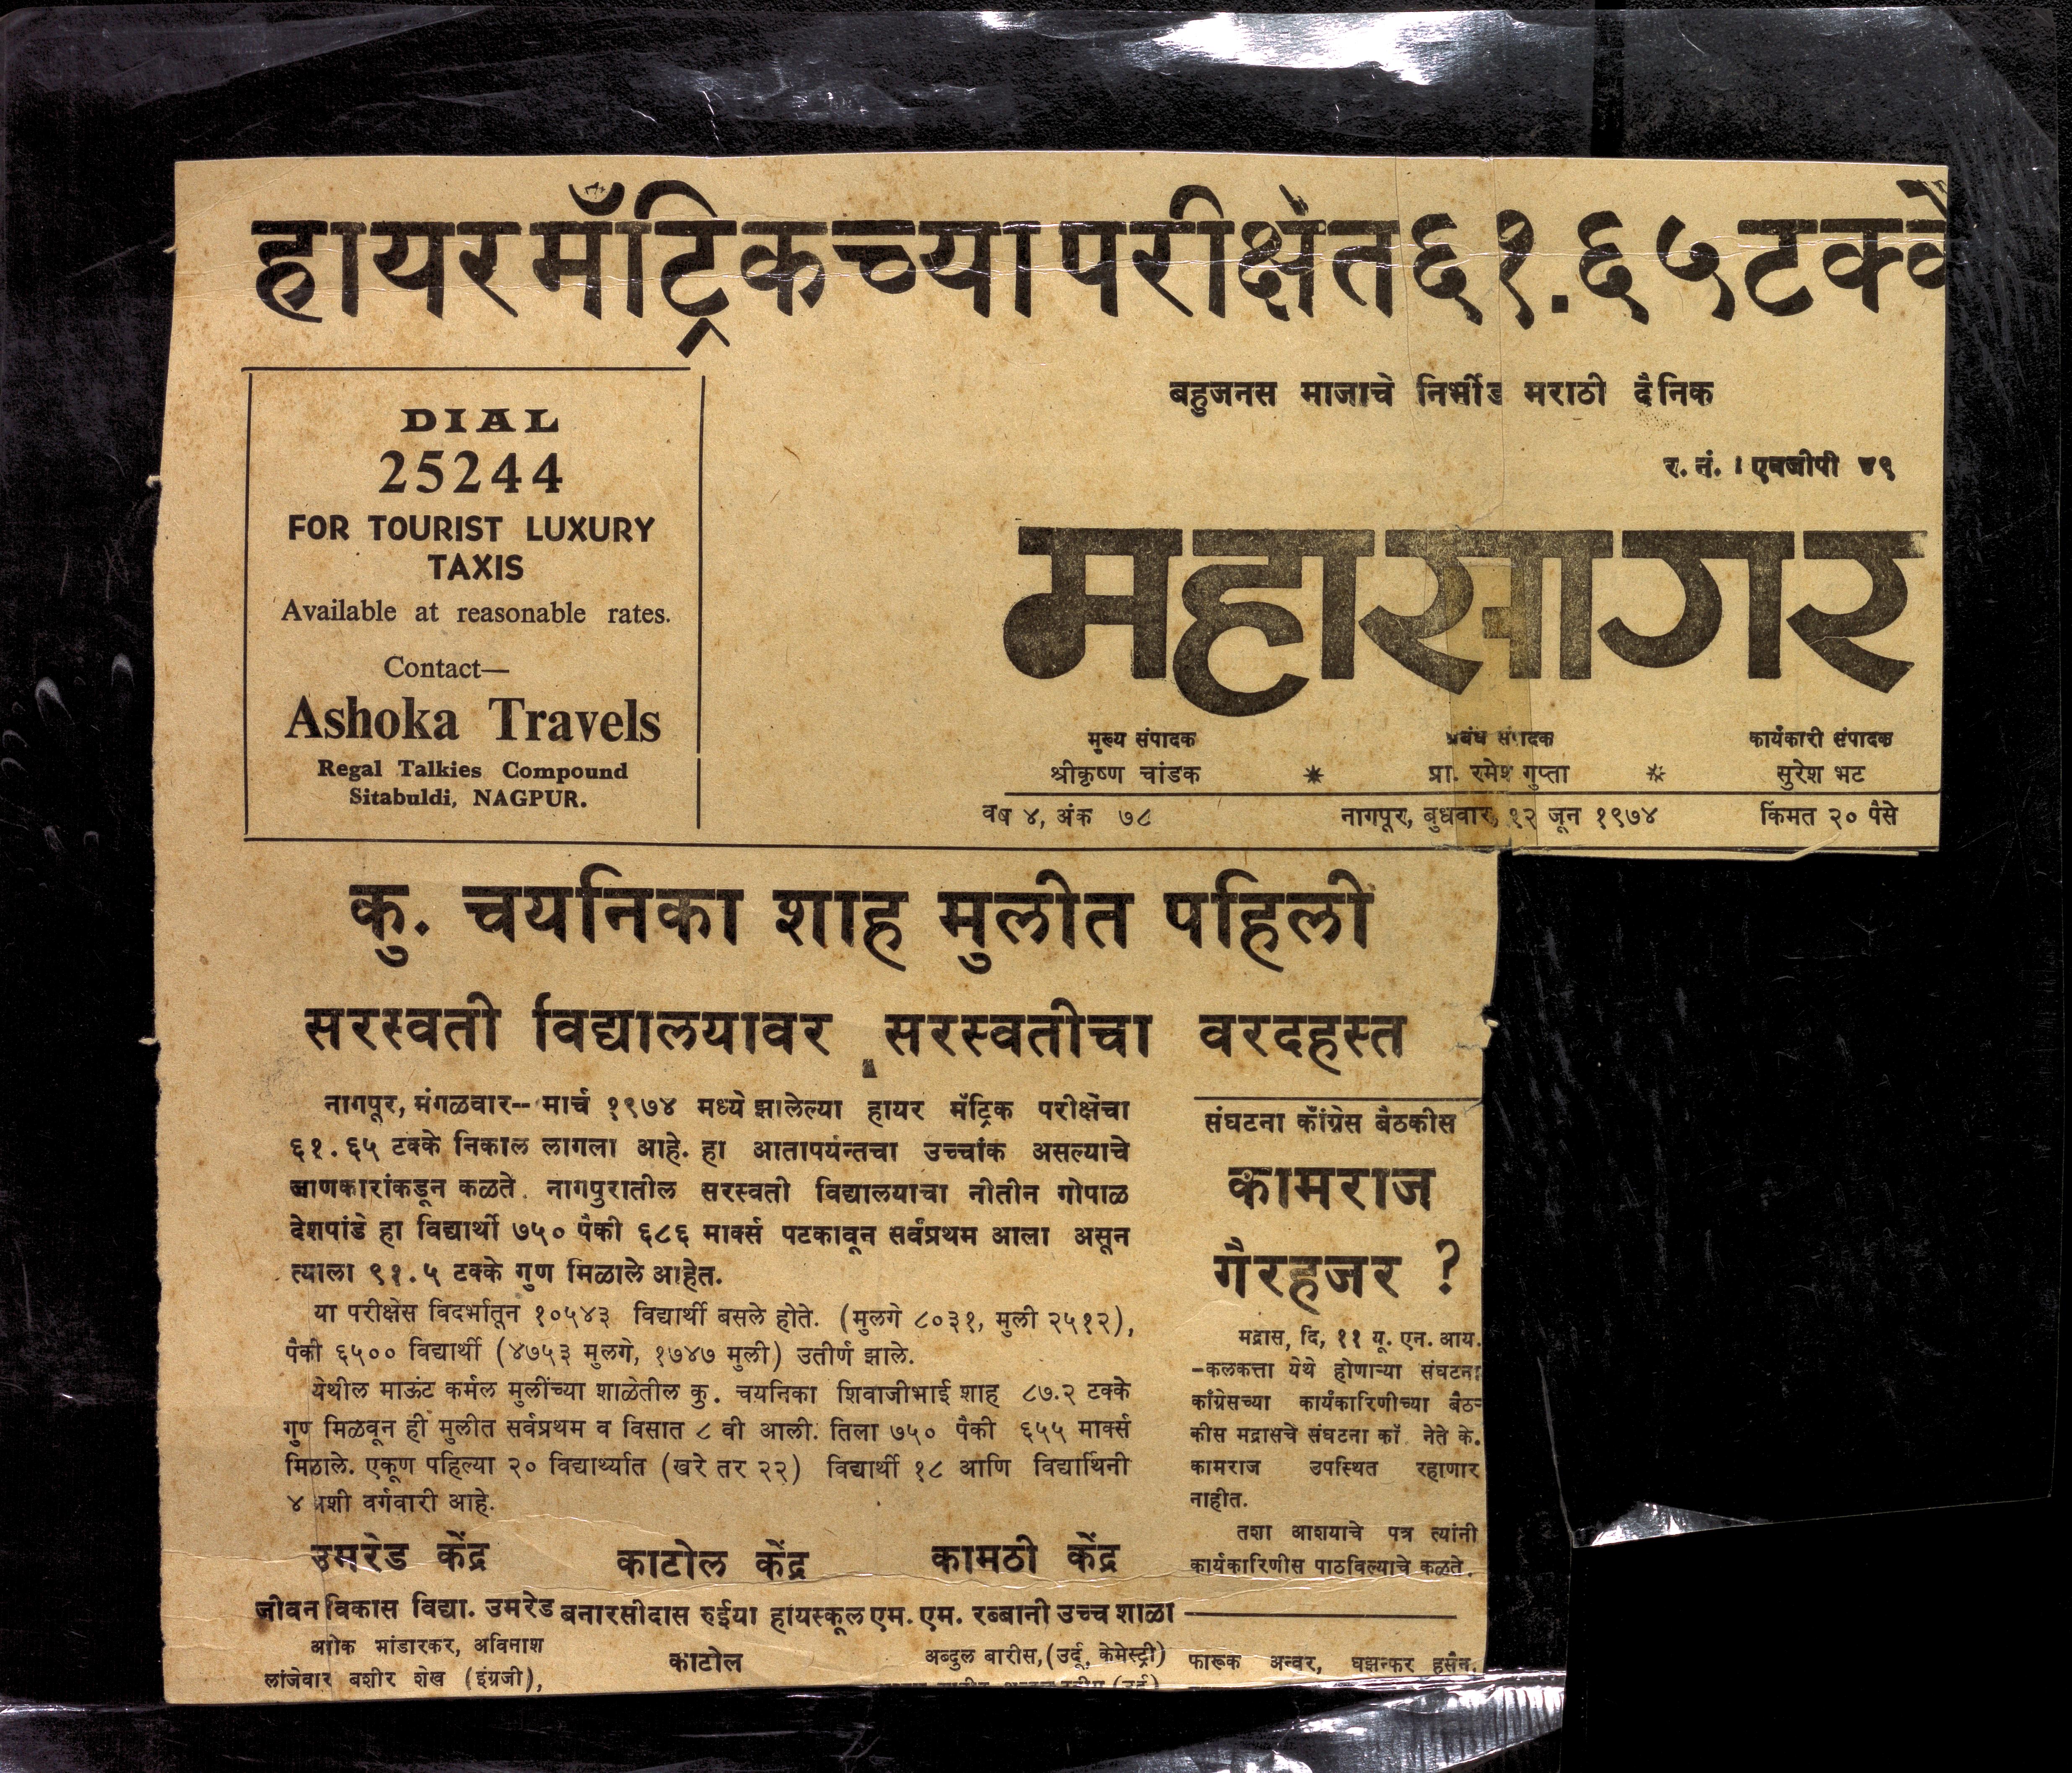 हायर मॅट्रिकच्या परीक्षेत ६१.६५ टक्के
DIAL
25244
FOR TOURIST LUXURY
TAXIS
Available at reasonable rates.
Contact—
Ashoka Travels
Regal Talkies Compound
Sitabuldi, NAGPUR.
बहुजनस माजाचे निर्भीड मराठी दैनिक
र. नं. । एनजीपी ४९
महासागर
मुख्य संपादक
श्रीकृष्ण चांडक
प्रबंध संपादक
प्रा. रमेश गुप्ता
कार्यकारी संपादक
सुरेश भट
वर्ष ४, अंक ७८ नागपूर, बुधवार, १२ जून १९७४ किंमत २० पैसे
कु. चयनिका शाह मुलीत पहिली
सरस्वती विद्यालयावर सरस्वतीचा वरदहस्त
नागपूर, मंगळवार-- मार्च १९७४ मध्ये झालेल्या हायर मॅट्रिक परीक्षेचा
६१.६५ टक्के निकाल लागला आहे. हा आतापर्यन्तचा उच्चांक असल्याचे
जाणकारांकडून कळते. नागपुरातील सरस्वती विद्यालयाचा नीतीन गोपाळ
देशपांडे हा विद्यार्थी ७५० पैकी ६८६ मार्क्स पटकावून सर्वप्रथम आला असून
त्याला ९१.५ टक्के गुण मिळाले आहेत.
या परीक्षेस विदर्भातून १०५४३ विद्यार्थी बसले होते. (मुलगे ८०३१, मुली २५१२),
पैकी ६५०० विद्यार्थी (४७५३ मुलगे, १७४७ मुली) उतीर्ण झाले.
येथील माऊंट कर्मल मुलींच्या शाळेतील कु. चयनिका शिवाजीभाई शाह ८७.२ टक्के
गुण मिळवून ही मुलीत सर्वप्रथम व विसात ८ वी आली. तिला ७५० पैकी ६५५ मार्क्स
मिळाले. एकूण पहिल्या २० विद्यार्थ्यात (खरे तर २२) विद्यार्थी १८ आणि विद्यार्थिनी
४ अशी वर्गवारी आहे.
उमरेड केंद्र
जीवन विकास विद्या. उमरेड
लांजेवार बशीर शेख (इंग्रजी),
काटोल केंद्र
बनारसीदास रुईया हायस्कूल
काटोल
कामठी केंद्र
एम. एम. रब्बानी उच्च शाळा
अब्दुल बारीस, (उर्दू, केमेस्ट्री)
संघटना काँग्रेस बैठकीस
कामराज
गैरहजर ?
मद्रास, दि, ११ यू. एन. आय.
-कलकत्ता येथे होणाऱ्या संघटना
काँग्रेसच्या कार्यकारिणीच्या बैठ-
कीस मद्रासचे संघटना काँ. नेते के.
कामराज उपस्थित रहाणार
नाहीत.
तशा आशयाचे पत्र त्यांनी
कार्यकारिणीस पाठविल्याचे कळते.
फारूक अन्वर, घझन्फर हसन,